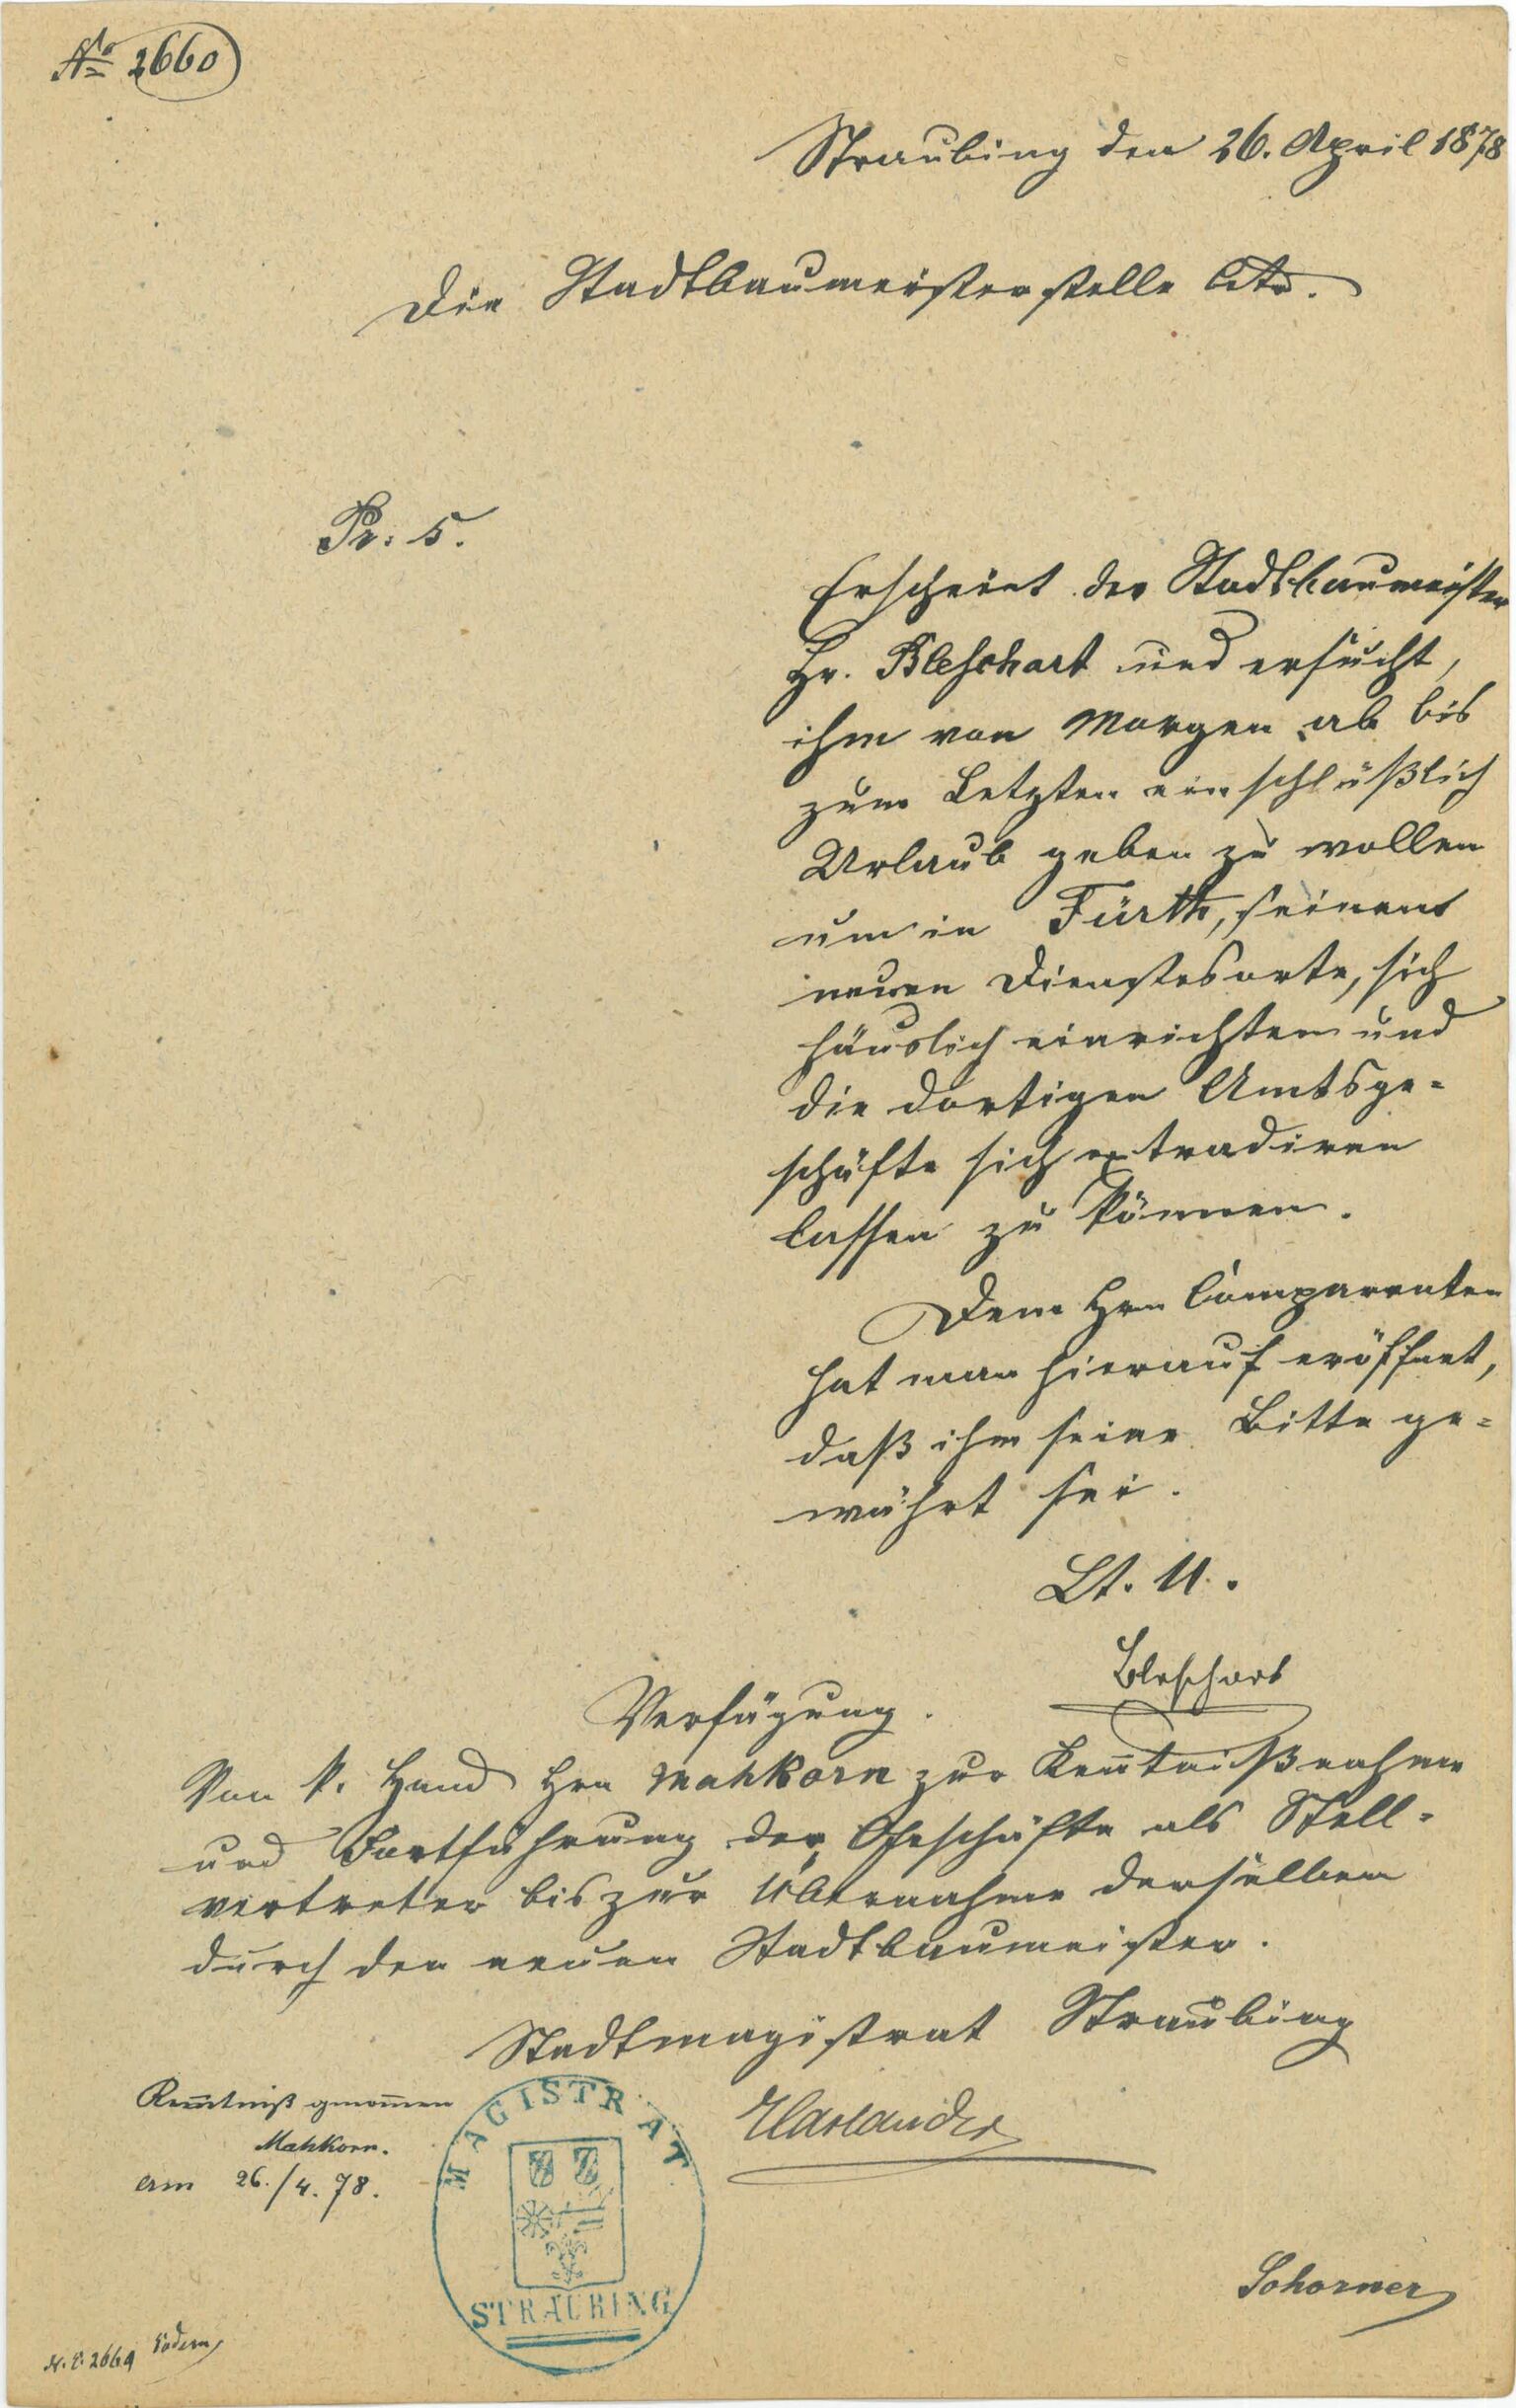 No 2660
Straubing den 26. April 1878
Die Stadtbaumeisterstelle btr.
Pr: 5.
Erscheint der Stadtbaumeister
Hr. Bleschart und ersucht,
ihm von Morgen ab bis
zum Letzten einschlüßlich
Urlaub geben zu wollen
um in Fürth, seinem
neuen Dienstesorte, sich
häuslich einrichten und
die dortigen Amtsge=
schäfte sich extradiren
lassen zu können.
Dem Hrn Comparenten
hat man hierauf eröffnet,
daß ihm seine Bitte ge=
währt sei.
Lt. U.
Bleschart
Verfügung.
Von k. Hand Hrn Mahkorn zur Kenntnißnahme
und Fortführung der Geschäfte als Stell=
vertreter bis zur Übernahme derselben
durch den neuen Stadtbaumeister.
Stadtmagistrat Straubing
Kenntniß genommen
Mahkorn.
am 26./4. 78.
MAGISTRAT
STRAUBING
Harlander
Schorner
2664